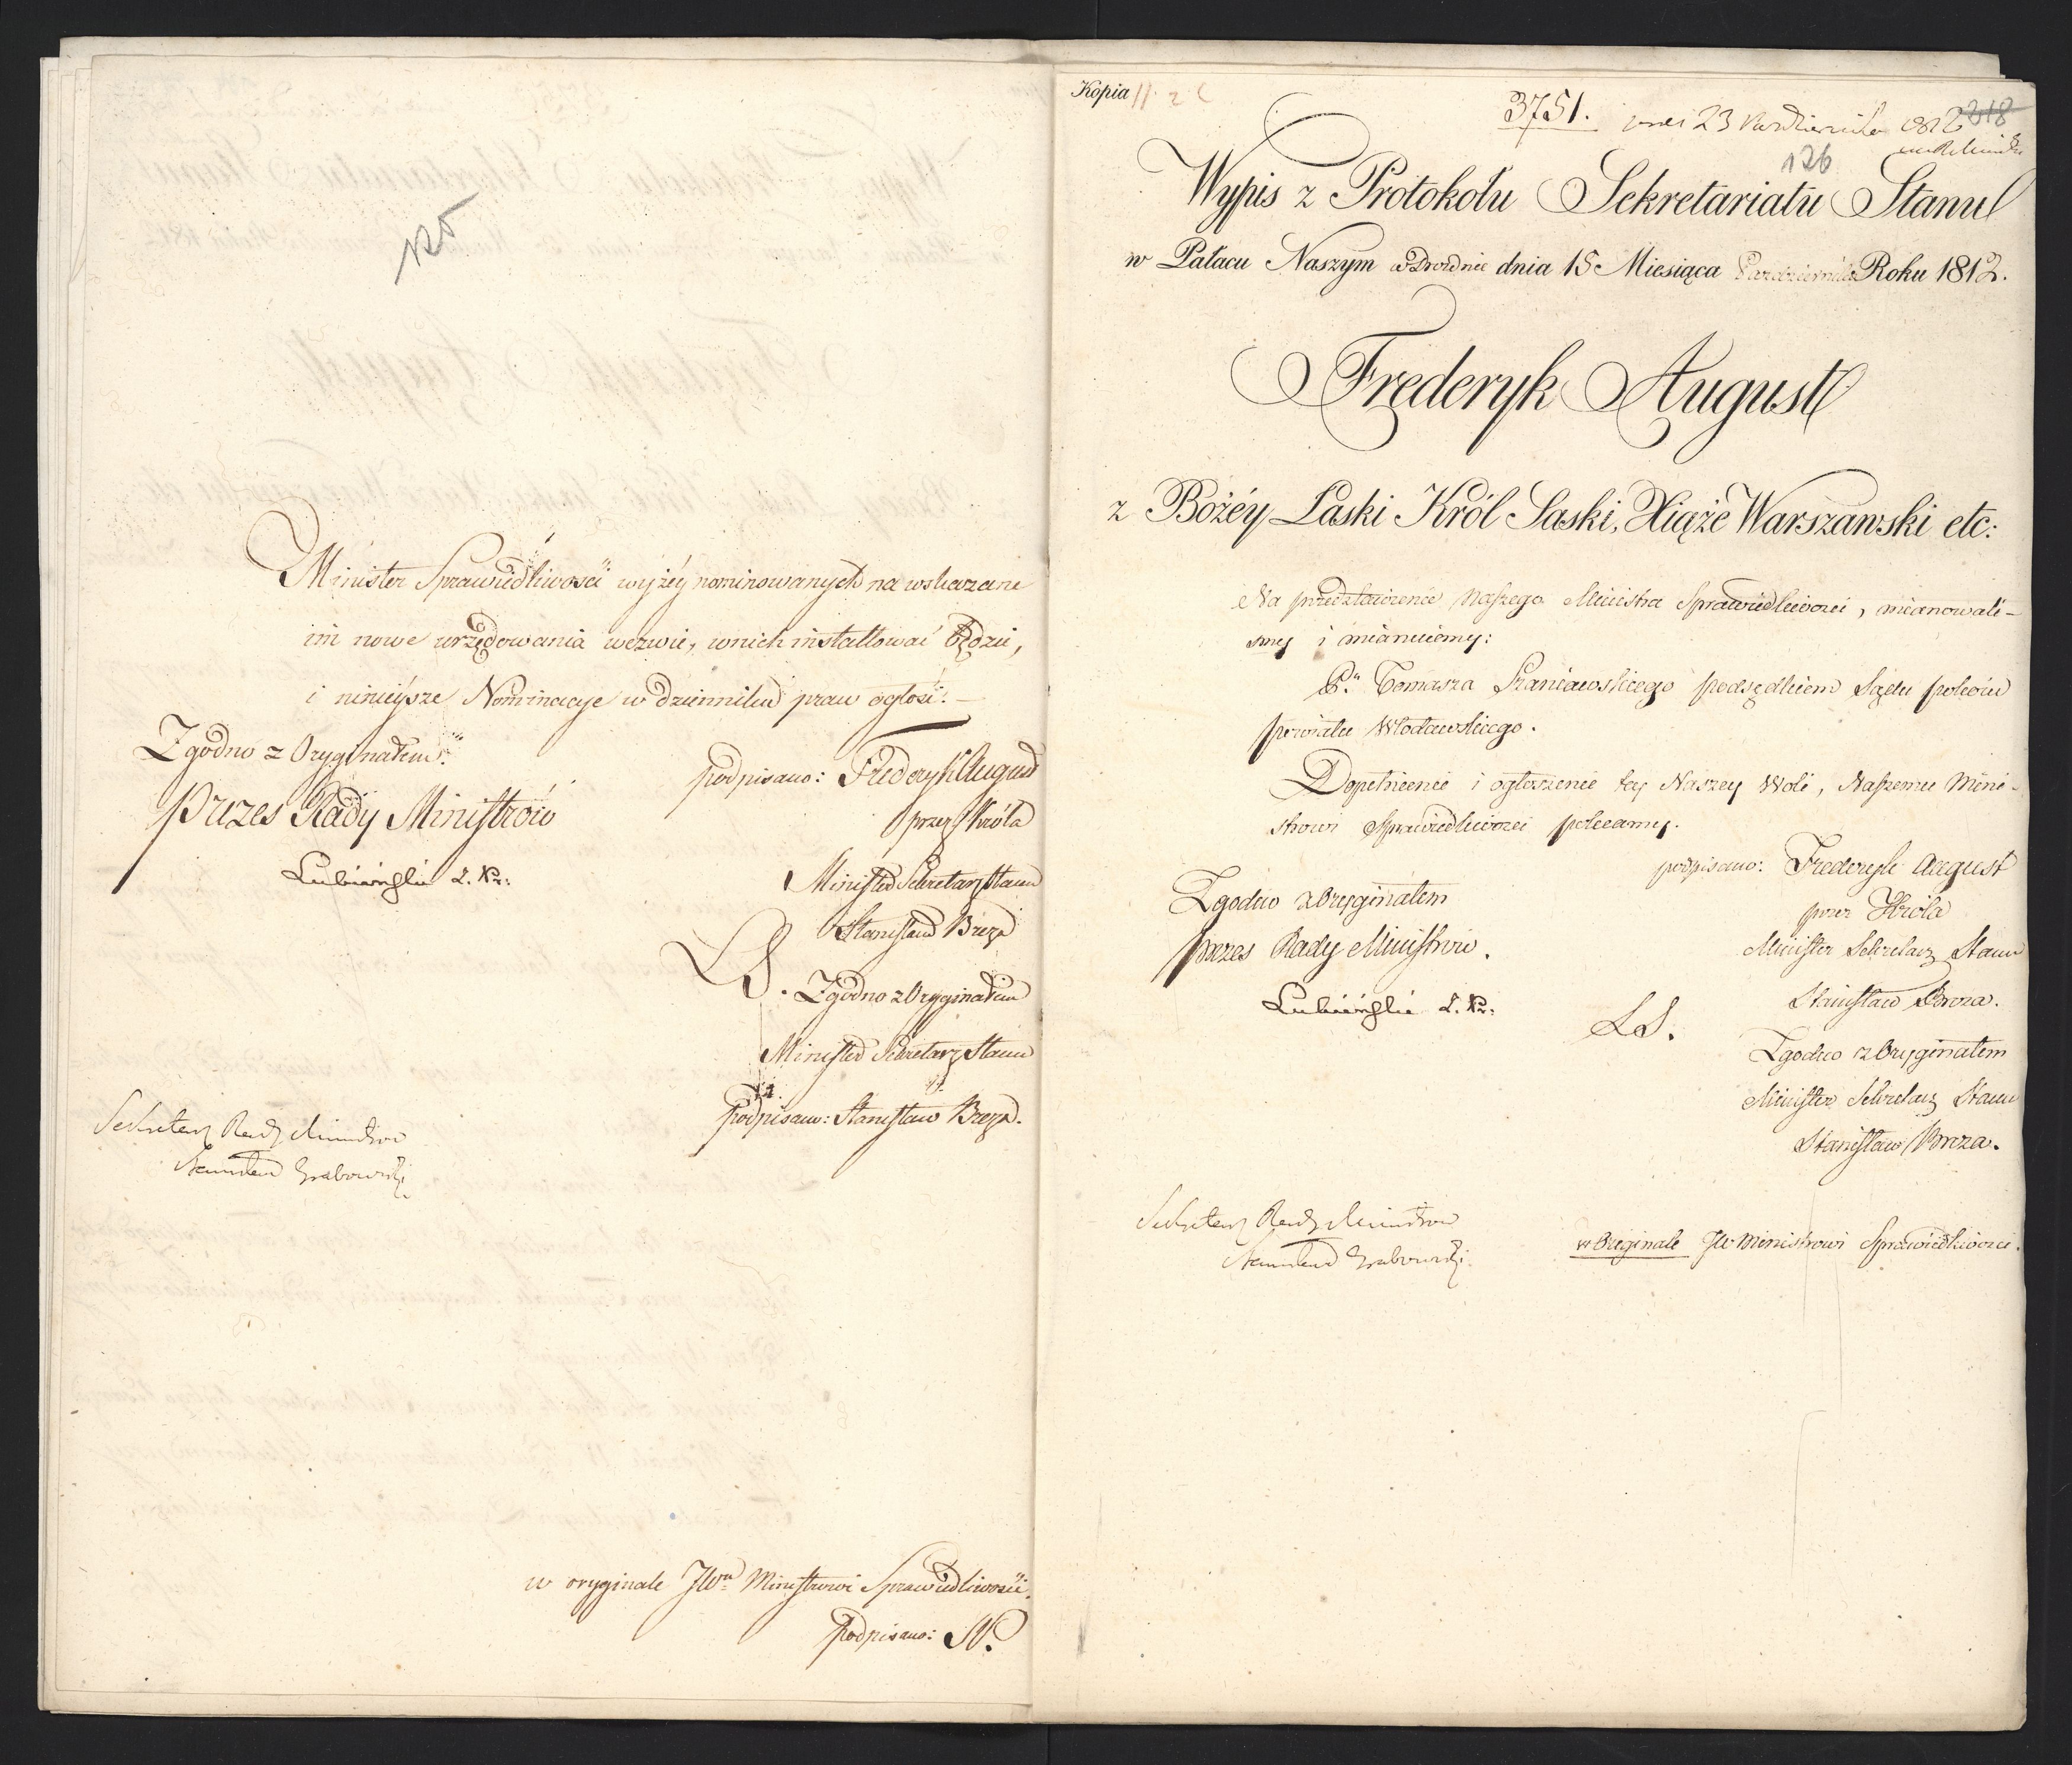 125
Minister Sprawiedliwości wyżéy nominowanych na wskazane
im nowe urzędowania wezwie, w nich installować będzie,
i ninieysze Nominacye w dzienniku praw ogłosi. —
Zgodno z Oryginałem
Prezes Rady Ministrów
Lubieński Z. Pr:
podpisano: Frederyk August
przez Króla
Minister Sekretarz Stanu
Stanisław Breza
LS. Zgodno z Oryginałem
Minister Sekretarz Stanu
podpisano: Stanisław Breza.
Sekretarz Rady Ministrow
Stanisław Grabowski
w oryginale JWu Ministrowi Sprawiedliwości.
Podpisano:
Kopia
3751. 23 Października 1812 218
126
Wypis z Protokołu Sekretariatu Stanu
w Pałacu Naszym w Dreznie dnia 15 Miesiąca Października Roku 1812.
Frederyk August
z Bożéy Łaski Król Saski, Xiąże Warszawski etc:
Na przedstawienie Naszego Ministra Sprawiedliwości, mianowali-
smy i mianuiemy:
P. Tomasza Szaniawskiego podsędkiem Sądu pokoiu
powiatu Włodawskiego.
Dopełnienie i ogłoszenie tey Naszey Woli, Naszemu Mini-
strowi Sprawiedliwości polecamy.
podpisano: Frederyk August
przez Króla
Minister Sekretarz Stanu
Stanisław Breza.
Zgodno z Oryginałem
Prezes Rady Ministrów.
Lubieński Z. Pr:
LS.
Zgodno z Oryginałem
Minister Sekretarz Stanu
Stanisław Breza.
Sekretarz Rady Ministrow
Stanisław Grabowski
w Oryginale JW Ministrowi Sprawiedliwości.